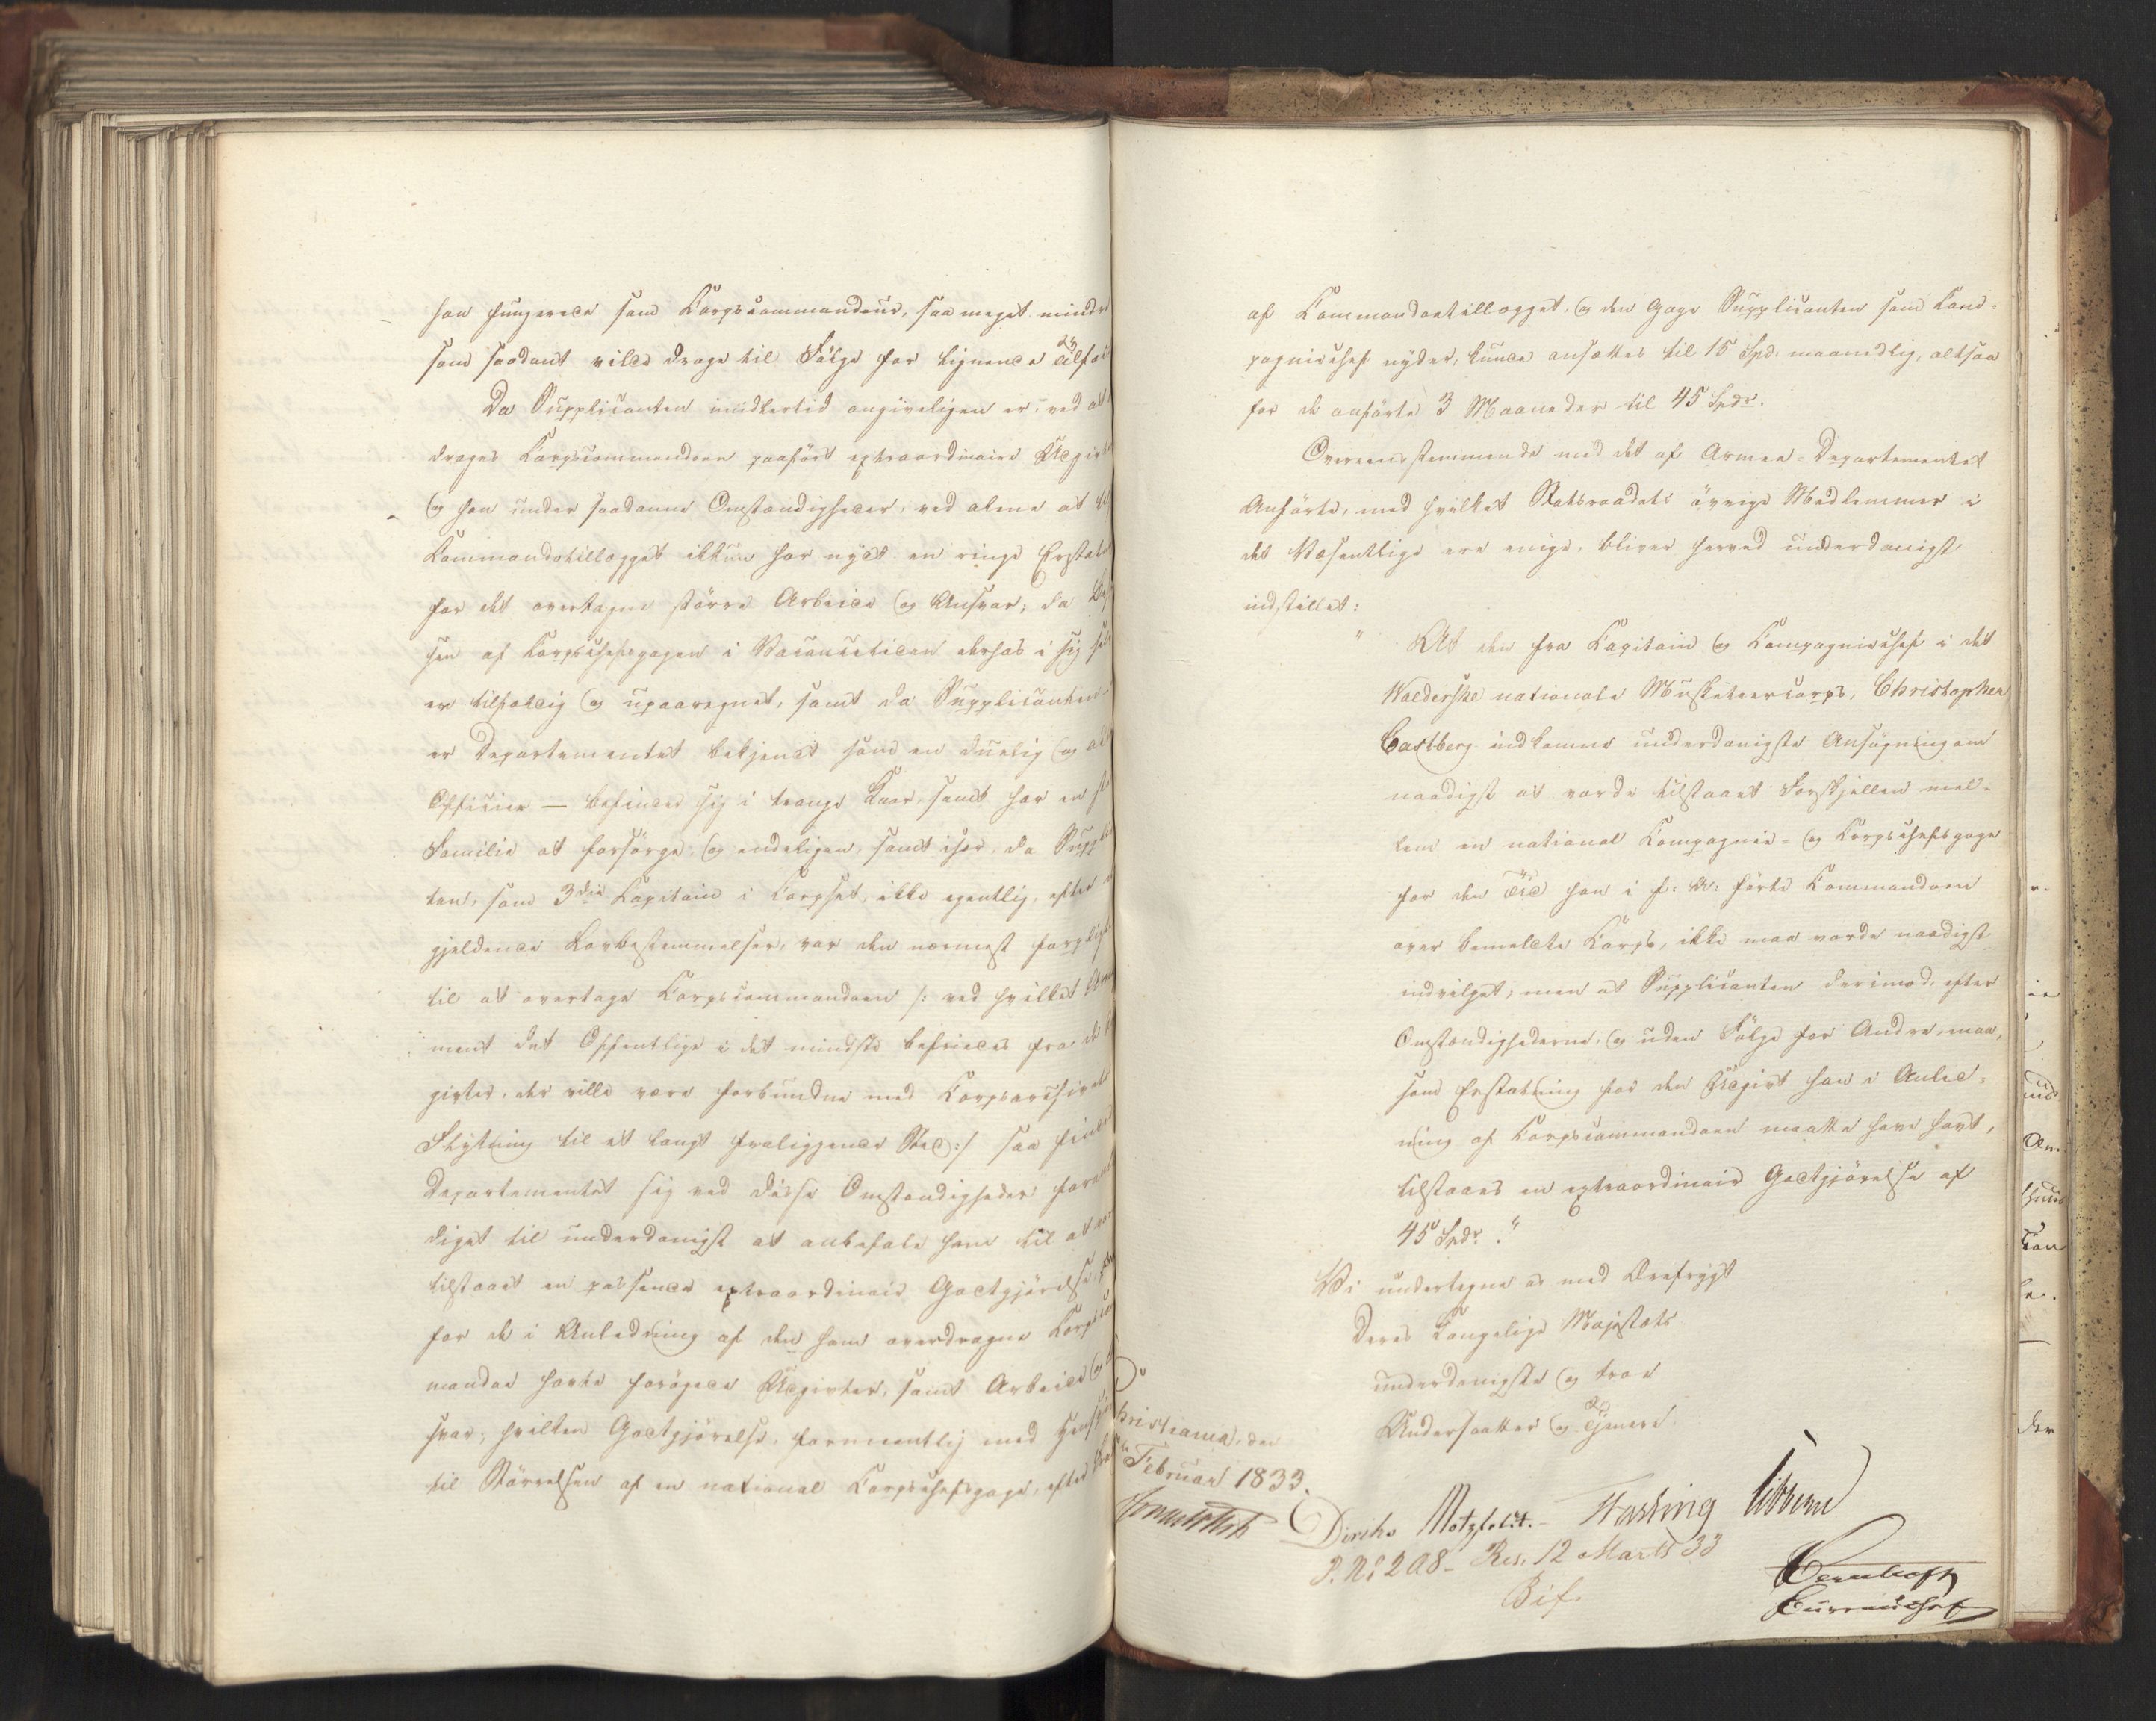 han fungerede som Corpscommandeur, saa meget mindre
som saadant vilde drage til Følge for lignende Tilfælde
Da Supplicanten imidlertid angiveligen er, ved at
drages Corpscommandoen paaført extraordinaire Udgivter
og han under saadanne Omstændigheder, ved alene at
Commandotillægget ikkun har nydt en ringe Erstat
for det overtagne større Arbeide og Ansvar; da
sen af Corpschefsgagen i Vacancetiden derhos i sig
er tilfældig og upaaregnet, samt da Supplicanten
er Departementet bekjendt som en duelig og
Officier — befinder sig i trange Kaar, samt har en
Familie at forsørge, og endeligen, samt især, da Suppli
ten, som 3die Capitain i Corpset, ikke egentlig, efter
gjeldende Lovbestemmelser, var den nærmest forpligt
til at overtage Corpscommandoen /: ved hvilket
ment det Offentlige i det mindste befriedes fra de
givter, der ville være forbundne med Corpsarchivets
Flytning til et langt fraliggende Sted :/ saa finder
Departementet sig ved disse Omstændigheder foran
diget til underdanigst at anbefale ham til at
tilstaaet en passende extraordinair Godtgjørelse,
for de i Anledning af den ham overdragne Corps
mando havte forøgede Udgivter, samt Arbeide og
svar; hvilken Godtgjørelse, formeentlig med Hensyn
til Størrelsen af en national Corpschefsgage, efter
af Commandotillægget, og den Gage Supplicanten som Com-
pagniechef nyder, kunde ansættes til 15 Spd. maanedlig, altsaa
for de anførte 3 Maaneder til 45 Spdr.
Overeensstemmende med det af Armee-Departementet
Anførte, med hvilket Statsraadets øvrige Medlemmer i
det Væsentlige ere enige, bliver herved underdanigst
indstillet:
" At den fra Capitain og Compagniechef i det
Walderske nationale Musketeercorps, Christopher
Castberg indkomne underdanigste Ansøgning om
naadigst at vorde tilstaaet Forskjellen mel-
lem en national Compagnie- og Corpschefsgage
for den Tid han i f: A: førte Commandoen
over bemeldte Corps, ikke maa vorde naadigst
indvilget; men at Supplicanten derimod, efter
Omstændighederne, og uden Følge for Andre, maa,
som Erstatning for den Udgivt han i Anled-
ning af Corpscommandoen maatte have havt,
tilstaaes en extraordinair Godtgjørelse af
45 Spdr."
Vi undertegne os med Ærefrygt
Deres Kongelige Majestæts
underdanigste og troe
Undersaatter og Tjenere.
Christiania, den
Februar 1833.
Diriks Motzfeldt. Fasting Sibbern
P. No 2 A 8 - Res. 12 Marts 33
Bif.